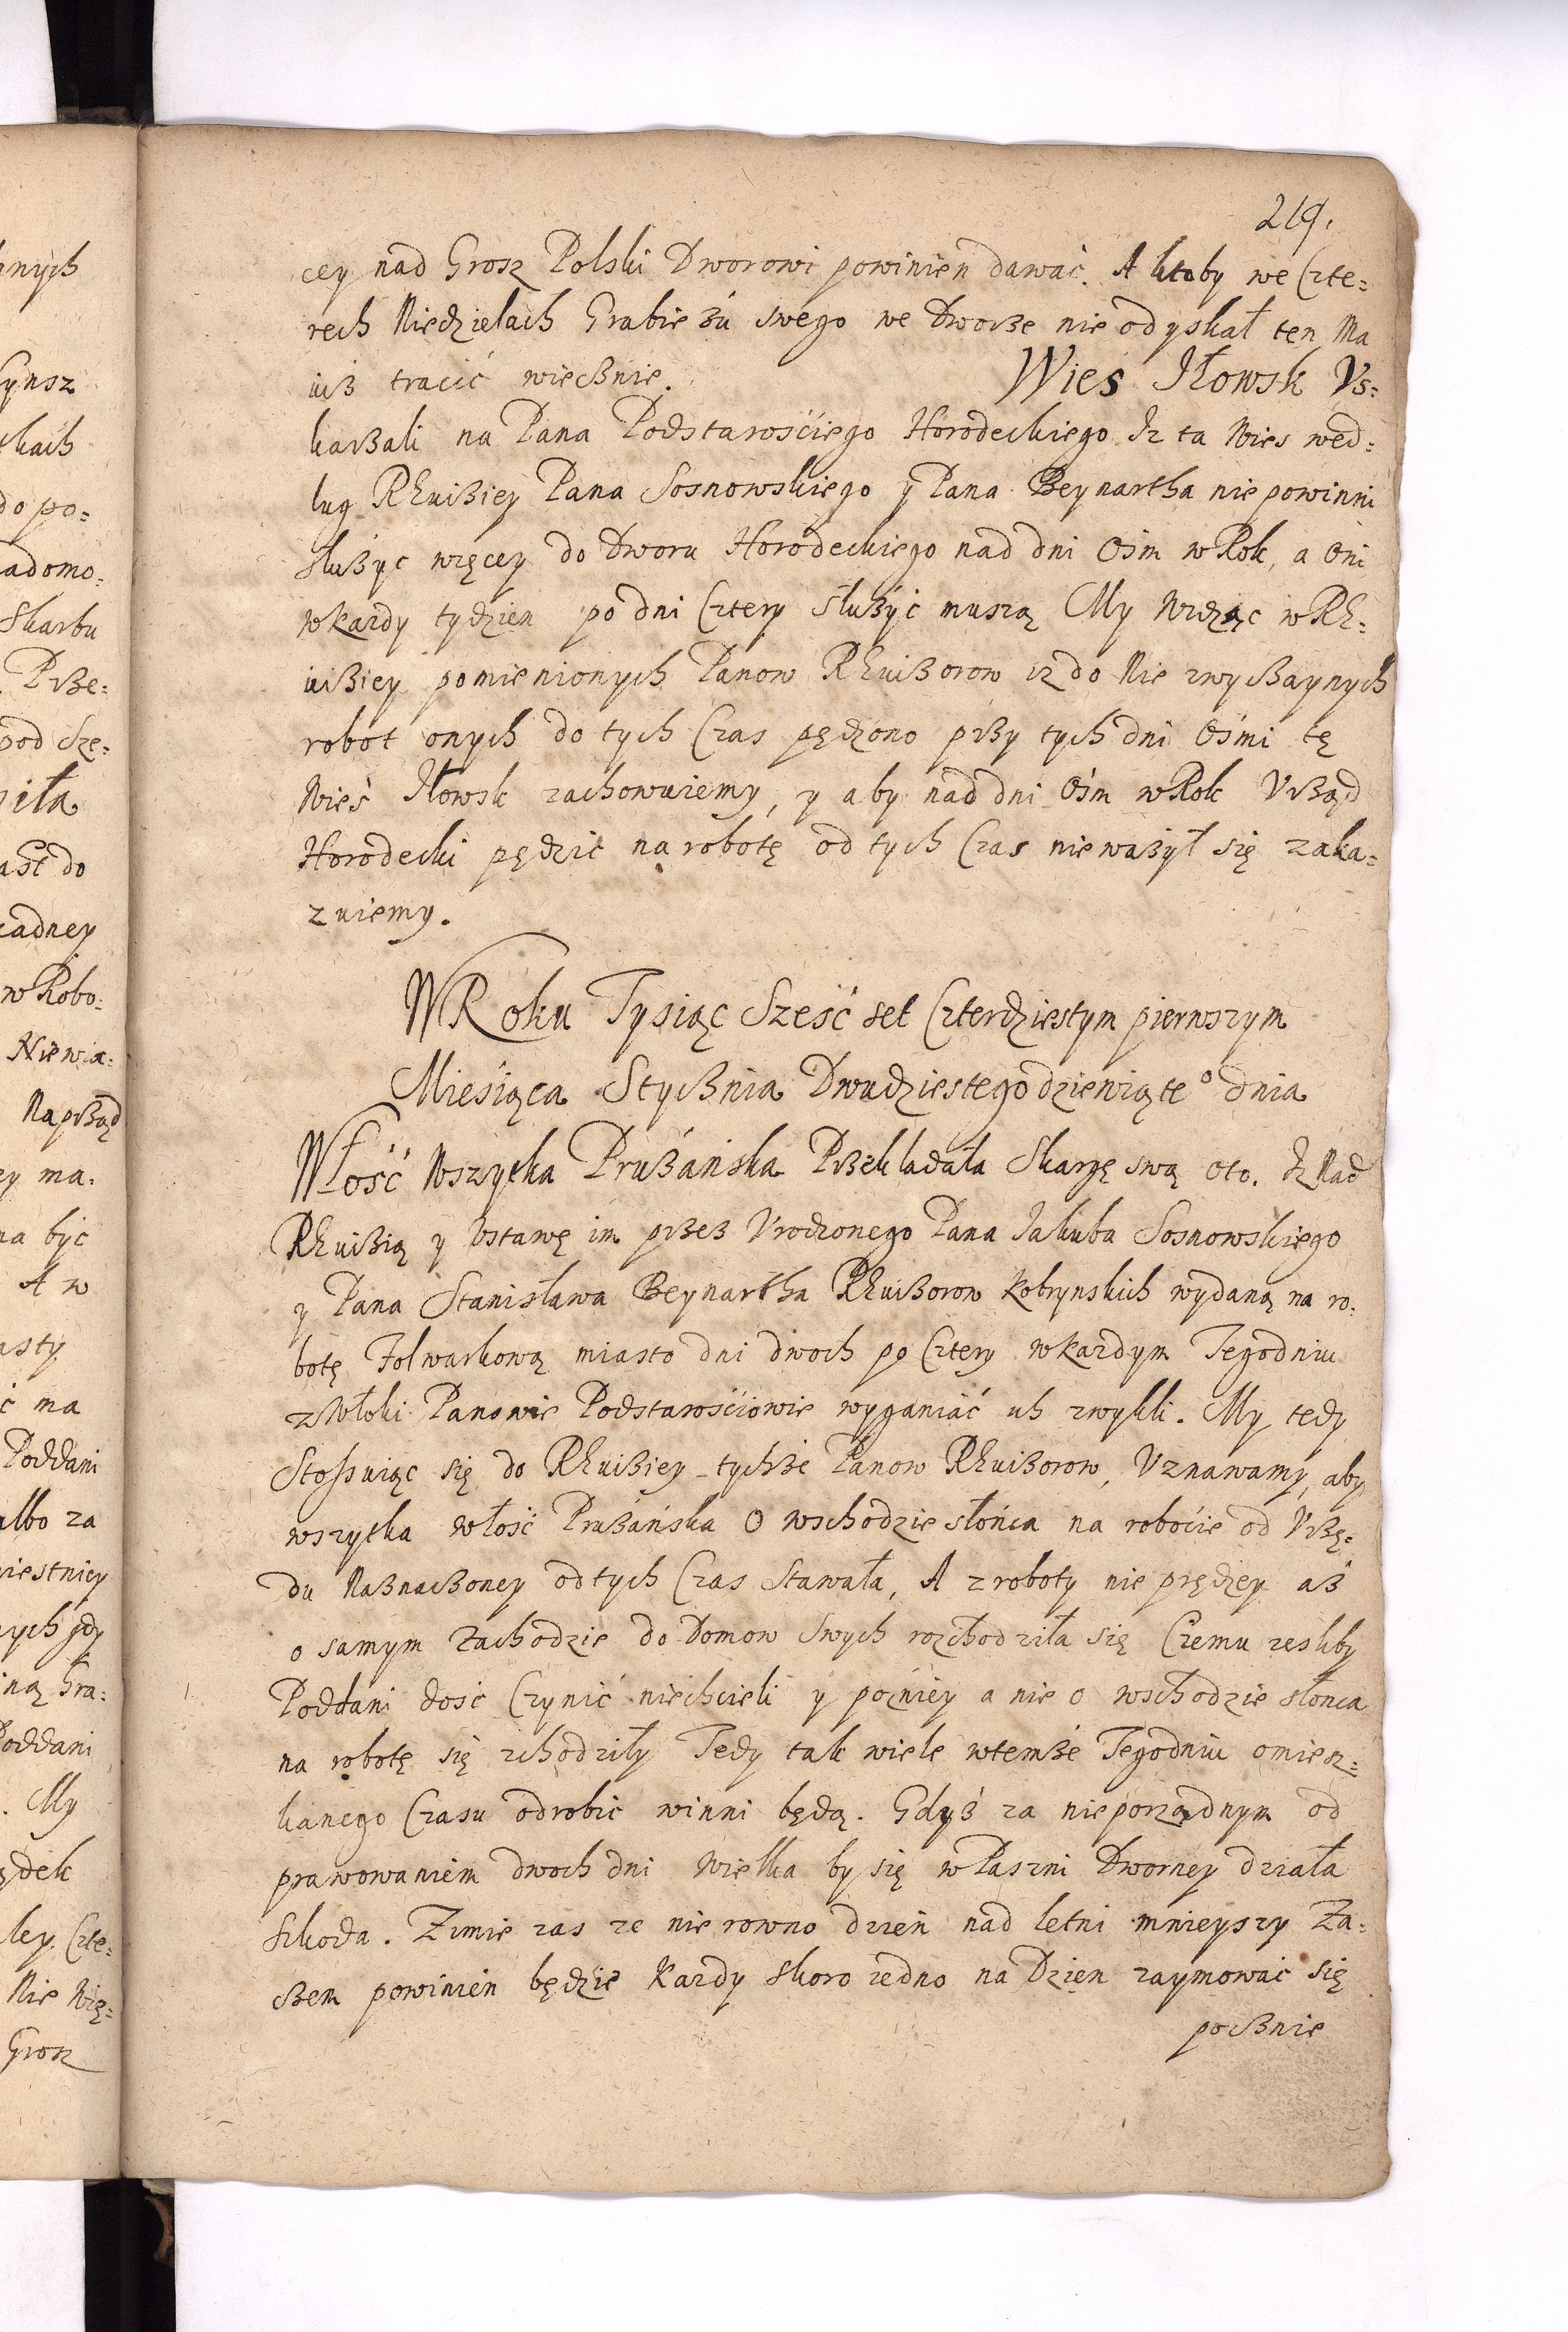 219.
cey nad Grosz Polski Dworowi powinien dawać. A ktoby we Czte=
rech Niedzielach Grabieżu swego we Dworze nie odyskał ten Ma
iuż tracić wiecznie. Wies Iłowsk Vs=
karżali na Pana Podstarośćiego Horodeckiego Iz ta Wies wed=
ług Rewiziey Pana Sosnowskiego y Pana Beynartha nie powinni
służyc więcey do Dworu Horodeckiego nad dni Ośm w Rok, a Oni
w każdy tydzien po dni Cztery służyć muszą My Widząc w Re=
wiziey pomienionych Panow Rewizorow iz do Nie zwyczaynych
robot onych do tych Czas pędzono przy tych dni Ośmi tę
Wieś Iłowsk zachowuiemy, y aby nad dni Ośm w Rok Vrząd
Horodecki pędzić na robotę od tych Czas nie ważył się zaka=
zuiemy.
W Roku Tysiąc Sześć set Czterdziestym pierwszym
Miesiąca Stycznia Dwudziestego dziewiąte° dnia
Włość Wszytka Prużańska Przekladała Skargę swą oto. Iz Nad
Rewizią y Vstawę im przez Vrodzonego Pana Iakuba Sosnowskiego
y Pana Stanisława Beynartha Rewizorow Kobrynskich wydaną na ro=
botę Folwarkową miasto dni dwoch po Cztery w każdym Tegodniu
z Włoki Panowie Podstarośćiowie wyganiać ich zwykli. My tedy
Stosuiąc się do Rewiziey tychże Panow Rewizorow, Vznawamy, aby
wszytka włość Prużańska O wschodzie słońca na roboćie od Vrzę=
du Naznaczoney od tych Czas Stawała, A z roboty nie prędzey aż
o samym Zachodzie do Domow Swych rozchodziła się Czemu iesliby
Poddani dość Czynić niechcieli y pozniey a nie o wschodzie słonca
na robotę się zchodziły Tedy tak wiele wtemże Tegodniu omiesz=
kanego Czasu odrobić winni będą. Gdyż za nieporządnym od
prawowaniem dwoch dni Wielka by się w Paszni Dworney działa
Szkoda. Zimie zas ze nie rowno dzień nad letni mnieyszy Za=
czem powinien będzie Kazdy skoro iedno na Dzien zaymować się
pocznie